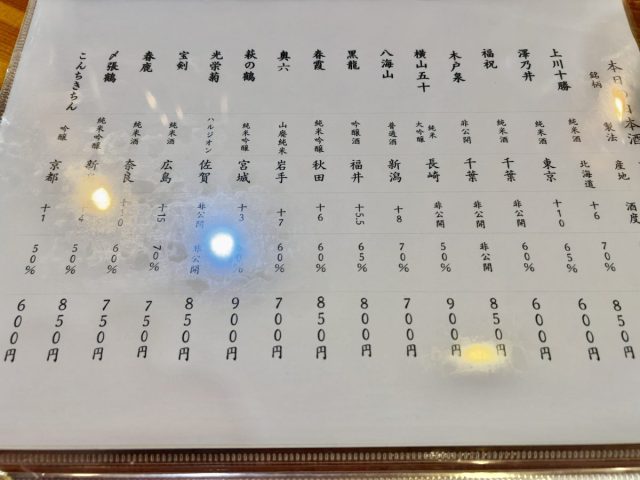 銘柄 製法 産地 酒度
上川十勝 純米酒 北海道 +6 70% 850円
澤乃井 純米酒 東京 +10 65% 600円
福祝 純米酒 千葉 +6 60% 600円
木戸泉 非公開 千葉 非公開 非公開 850円
横山五十 純米大吟醸 長崎 非公開 50% 900円
八海山 普通酒 新潟 +8 70% 700円
黒龍 吟醸酒 福井 +5.5 65% 800円
春霞 純米吟醸 秋田 +6 60% 850円
奥六 山廃純米 岩手 +7 60% 700円
萩の鶴 純米吟醸 宮城 +3 900円
光栄菊 ハルジオン 佐賀 非公開 非公開 850円
宝剣 純米酒 広島 +15 70% 750円
春鹿 純米酒 奈良 60% 750円
〆張鶴 純米吟醸 50% 850円
こんちきちん 吟醸 京都 +1 50% 600円